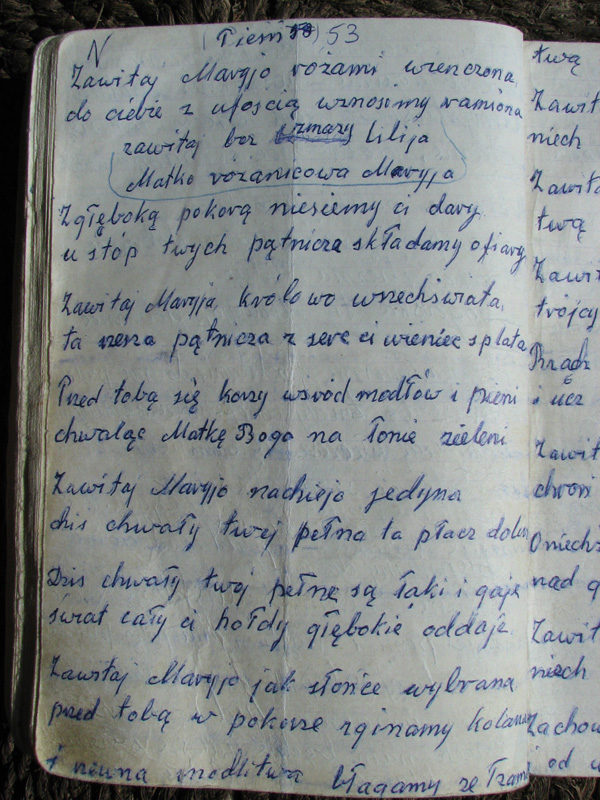 N
(Pieśń 53) 53
Zawitaj Maryjo różami wienczona
do ciebie z ufością wznosimy ramiona
zawitaj bez zmazy Lilija
Matko różanicowa Maryja
Z głęboką pokorą niesiemy ci dary
u stóp twych pątnicze składamy ofiary
Zawitaj Maryja królowo wrzechświata
ta rzesza pątnicza z serc ci wieniec splata
Przed tobą się korzy wsród modłów i pieni
chwaląc Matkę Boga na łonie zieleni
Zawitaj Maryjo nadziejo jedyna
dziś chwały twej pełna ta płacz
Dziś chwały twoj pełne są łąki i gaje
świat cały ci hołdy głębokie oddaje
Zawitaj Maryjo jak słońce wybrana
przed tobą w pokorze zginamy kolana
i rzewną modlitwą błagamy ze łzami
twą
Zawit
niech
Zawita
twą
Zawi
trójcy
i ucz
Zawit
chroń
nad g
Zawit
niech
Zachow
od